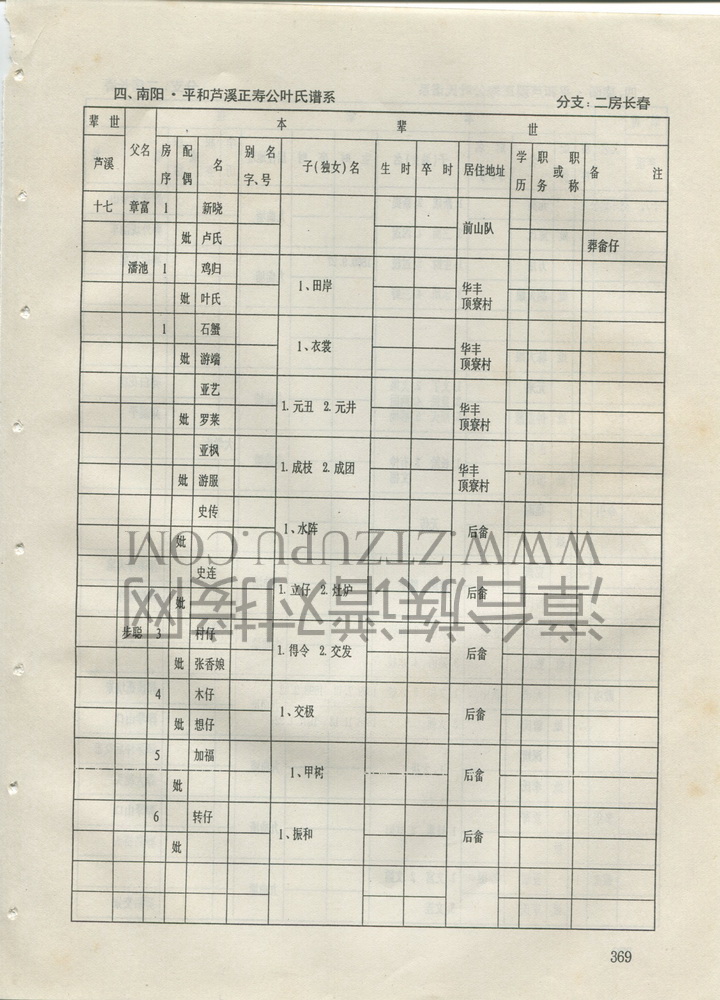 四、南阳·平和芦溪正寿公叶氏谱系 分支：二房长春
辈世 本 辈 世
芦溪 父名 房序 配偶 名 别名字、号 子(独女)名 生时 卒时 居住地址 学历 职或职务称 备注
十七 章富 1 新晓 前山队
妣 卢氏 葬畲仔
潘池 1 鸡归 1、田岸 华丰顶寮村
妣 叶氏
1 石蟹 1、衣裳 华丰顶寮村
妣 游端
亚艺 1.元丑 2.元井 华丰顶寮村
妣 罗莱
亚枫 1.成枝 2.成团 华丰顶寮村
妣 游服
史传 1、水阵 后畲
妣
史连 1.立仔 2.灶炉 后畲
妣
步聪 3 村仔 1.得令 2.交发 后畲
妣 张香娘
4 木仔 1、交极 后畲
妣 想仔
5 加福 1、甲树 后畲
妣
6 转仔 1、振和 后畲
妣
369
漳台族谱对接网
WWW.ZTZUPU.COM